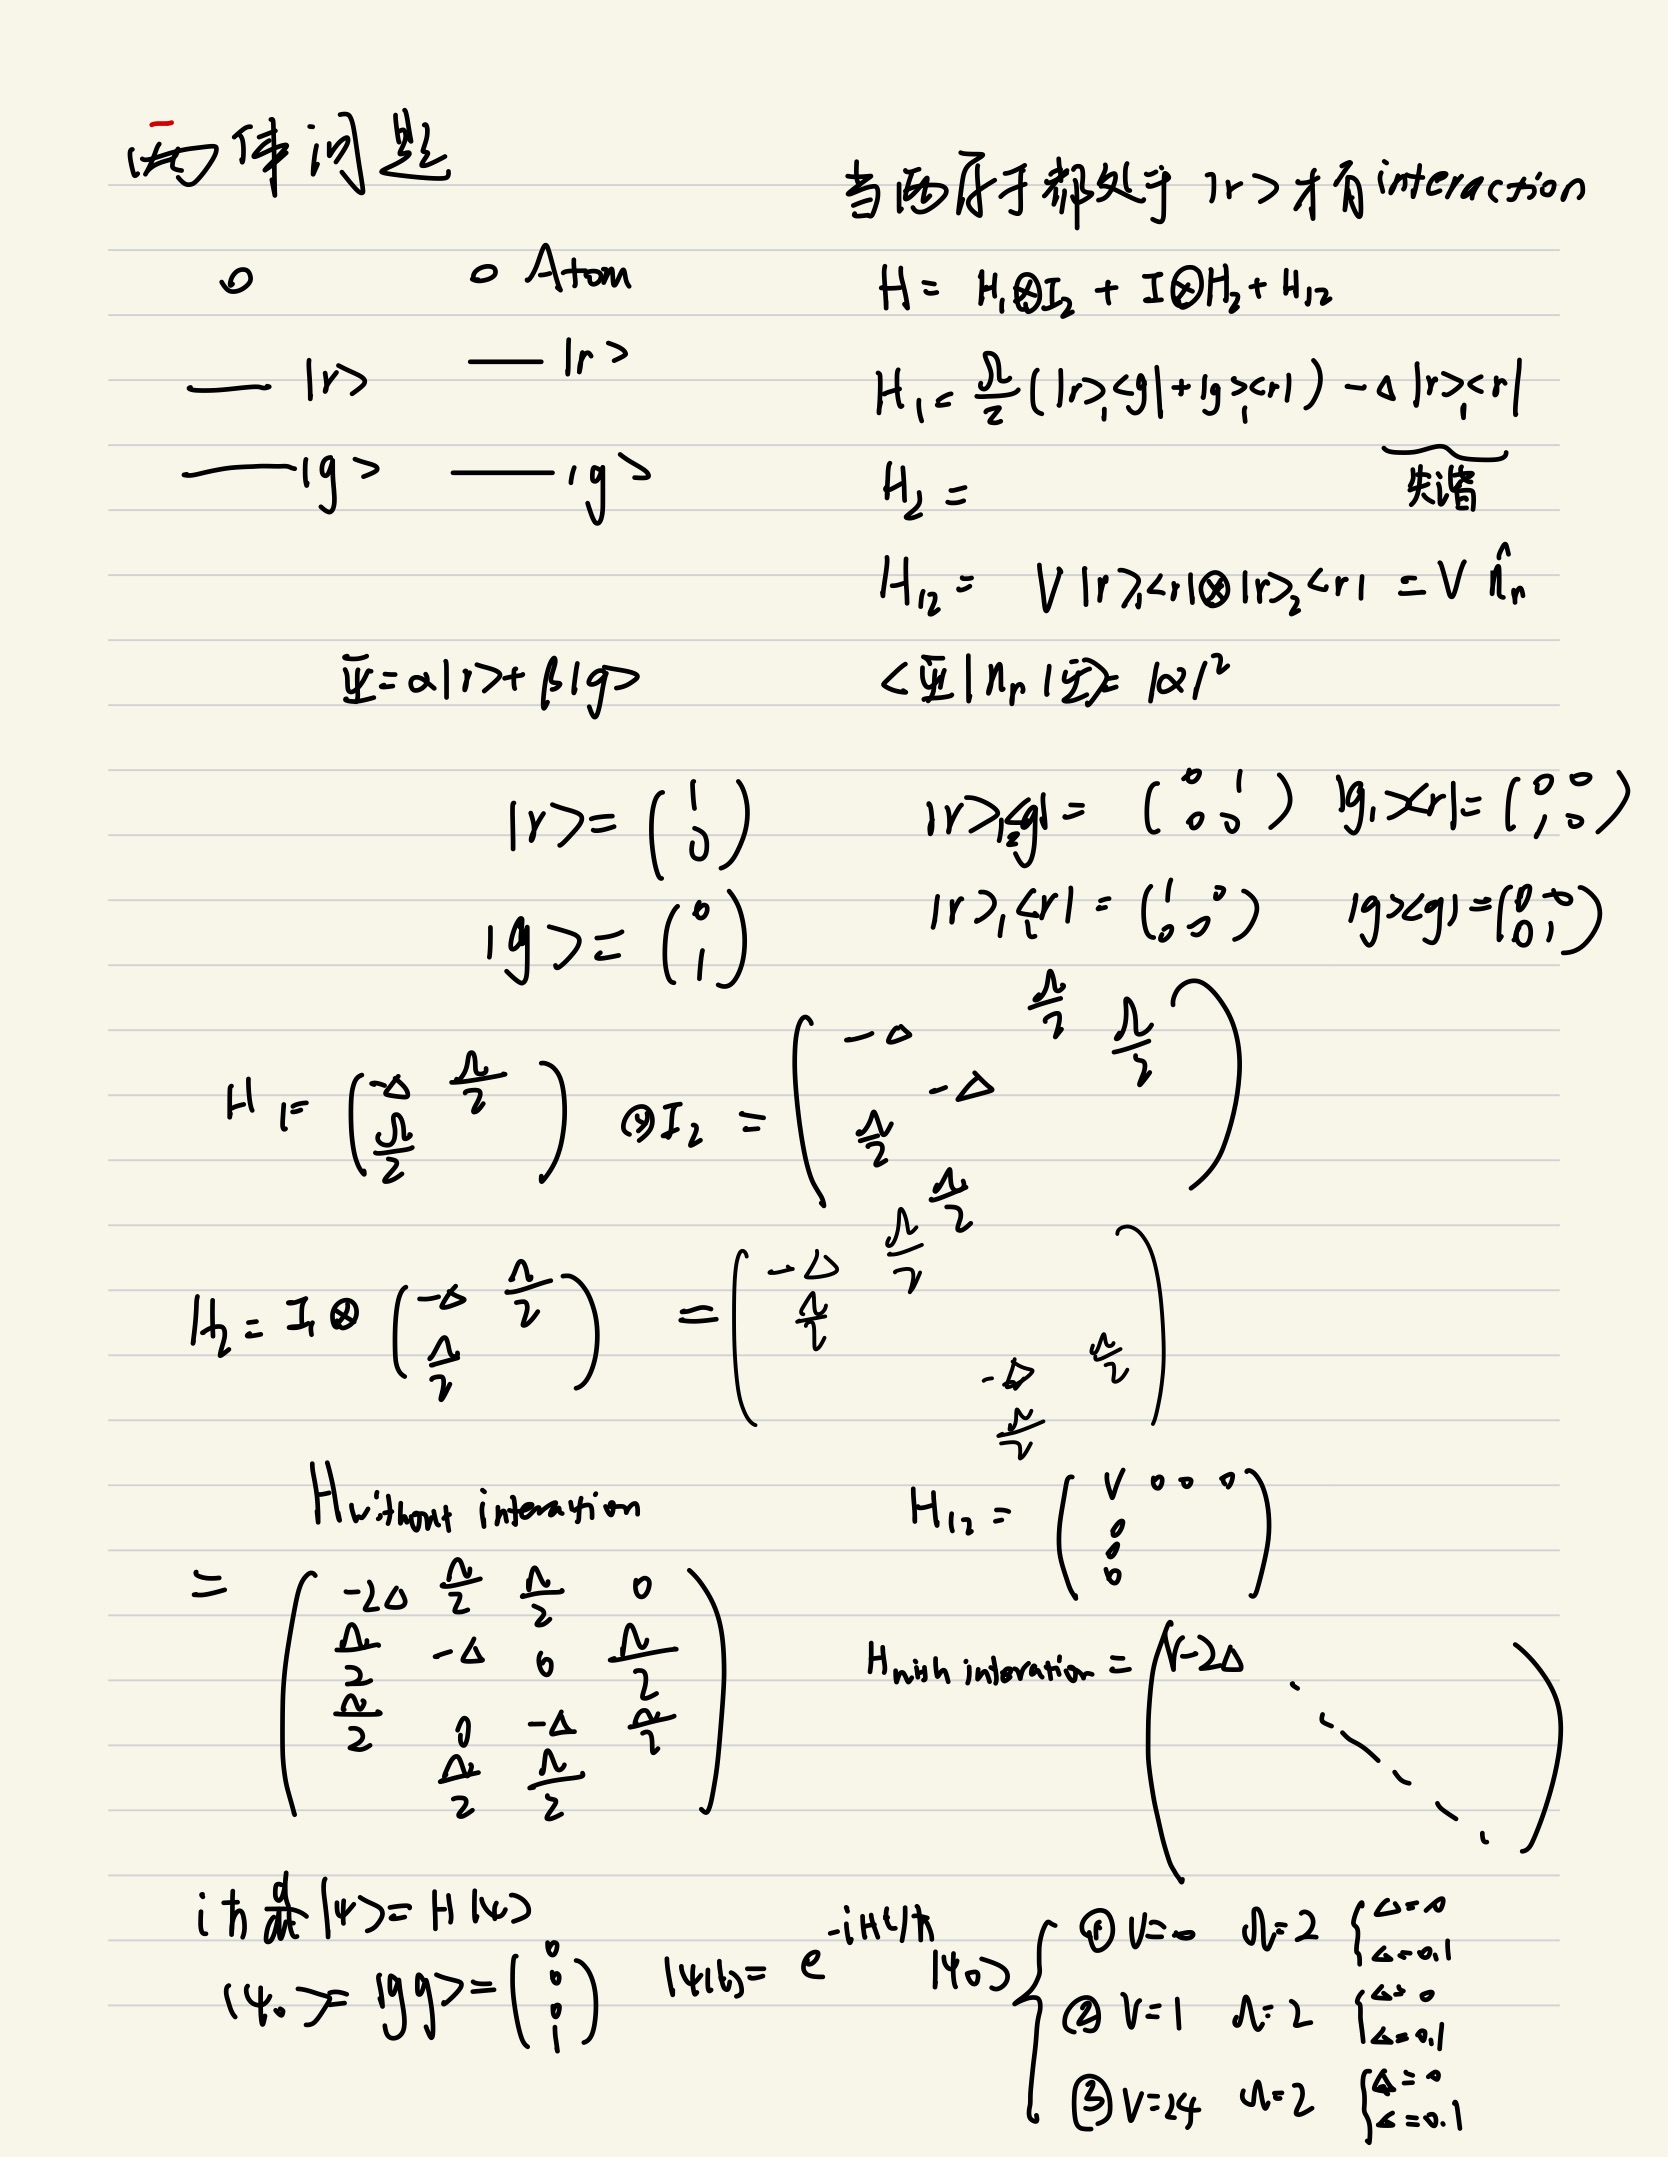 两体问题
当两原子都处于 |r> 才有 interaction
o o Atom
H = H₁⊗I₂ + I⊗H₂ + H₁₂
—— |r> —— |r>
H₁ = Ω/2 (|r>₁<g| + |g>₁<r|) - Δ |r>₁<r|
—— |g> —— |g>
失谐
H₂ =
H₁₂ = V |r>₁<r|⊗|r>₂<r| = V n̂ᵣ
Ψ = α|r> + β|g> <Ψ|nᵣ|Ψ> = |α|²
|r> = (1 ; 0) |r>₁<g| = (0 1 ; 0 0) |g₁><r| = (0 0 ; 1 0)
|g> = (0 ; 1) |r>₁<r| = (1 0 ; 0 0) |g><g| = (0 0 ; 0 1)
H₁ = (-Δ Ω/2 ; Ω/2 ) ⊗I₂ = (-Δ Ω/2 ; -Δ Ω/2 ; Ω/2 ; Ω/2)
H₂ = I₁⊗ (-Δ Ω/2 ; Ω/2 ) = (-Δ Ω/2 ; Ω/2 ; -Δ Ω/2 ; Ω/2)
H without interaction
H₁₂ = (V 0 0 0 ; 0 ; 0 ; 0)
= (-2Δ Ω/2 Ω/2 0 ; Ω/2 -Δ 0 Ω/2 ; Ω/2 0 -Δ Ω/2 ; Ω/2 Ω/2)
H with interation = (V-2Δ )
iħ d/dt |ψ> = H|ψ>
|ψ₀> = |gg> = (0 ; 0 ; 0 ; 1) |ψ(t)> = e^(-iHt/ħ) |ψ₀>
① V=0 Ω=2 { Δ=0 Δ=0.1
② V=1 Ω=2 { Δ=0 Δ=0.1
③ V=24 Ω=2 { Δ=0 Δ=0.1